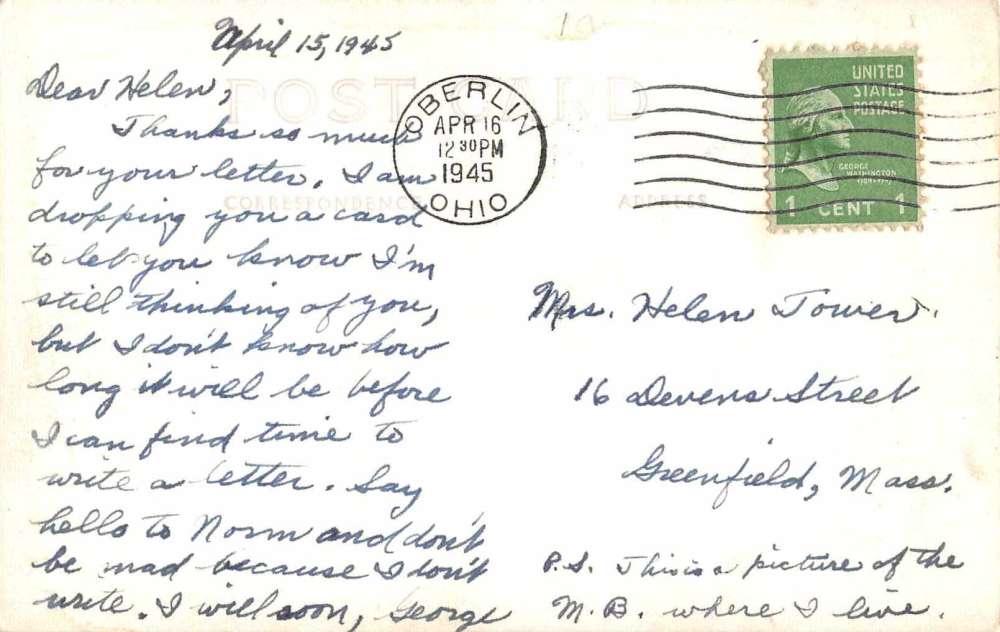 April 15, 1945
Dear Helen,
Thanks so much
for your letter. I am
dropping you a card
to let you know I'm
still thinking of you,
but I don't know how
long it will be before
I can find time to
write a letter. Say
hello to Norm and don't
be mad because I don't
write. I will soon, George
POST CARD
CORRESPONDENCE
ADDRESS
OBERLIN
APR 16
12 30 PM
1945
OHIO
UNITED
STATES
POSTAGE
GEORGE
WASHINGTON
1 CENT 1
Mrs. Helen Tower.
16 Devens Street
Greenfield, Mass.
P.S. This is a picture of the
M.B. where I live.